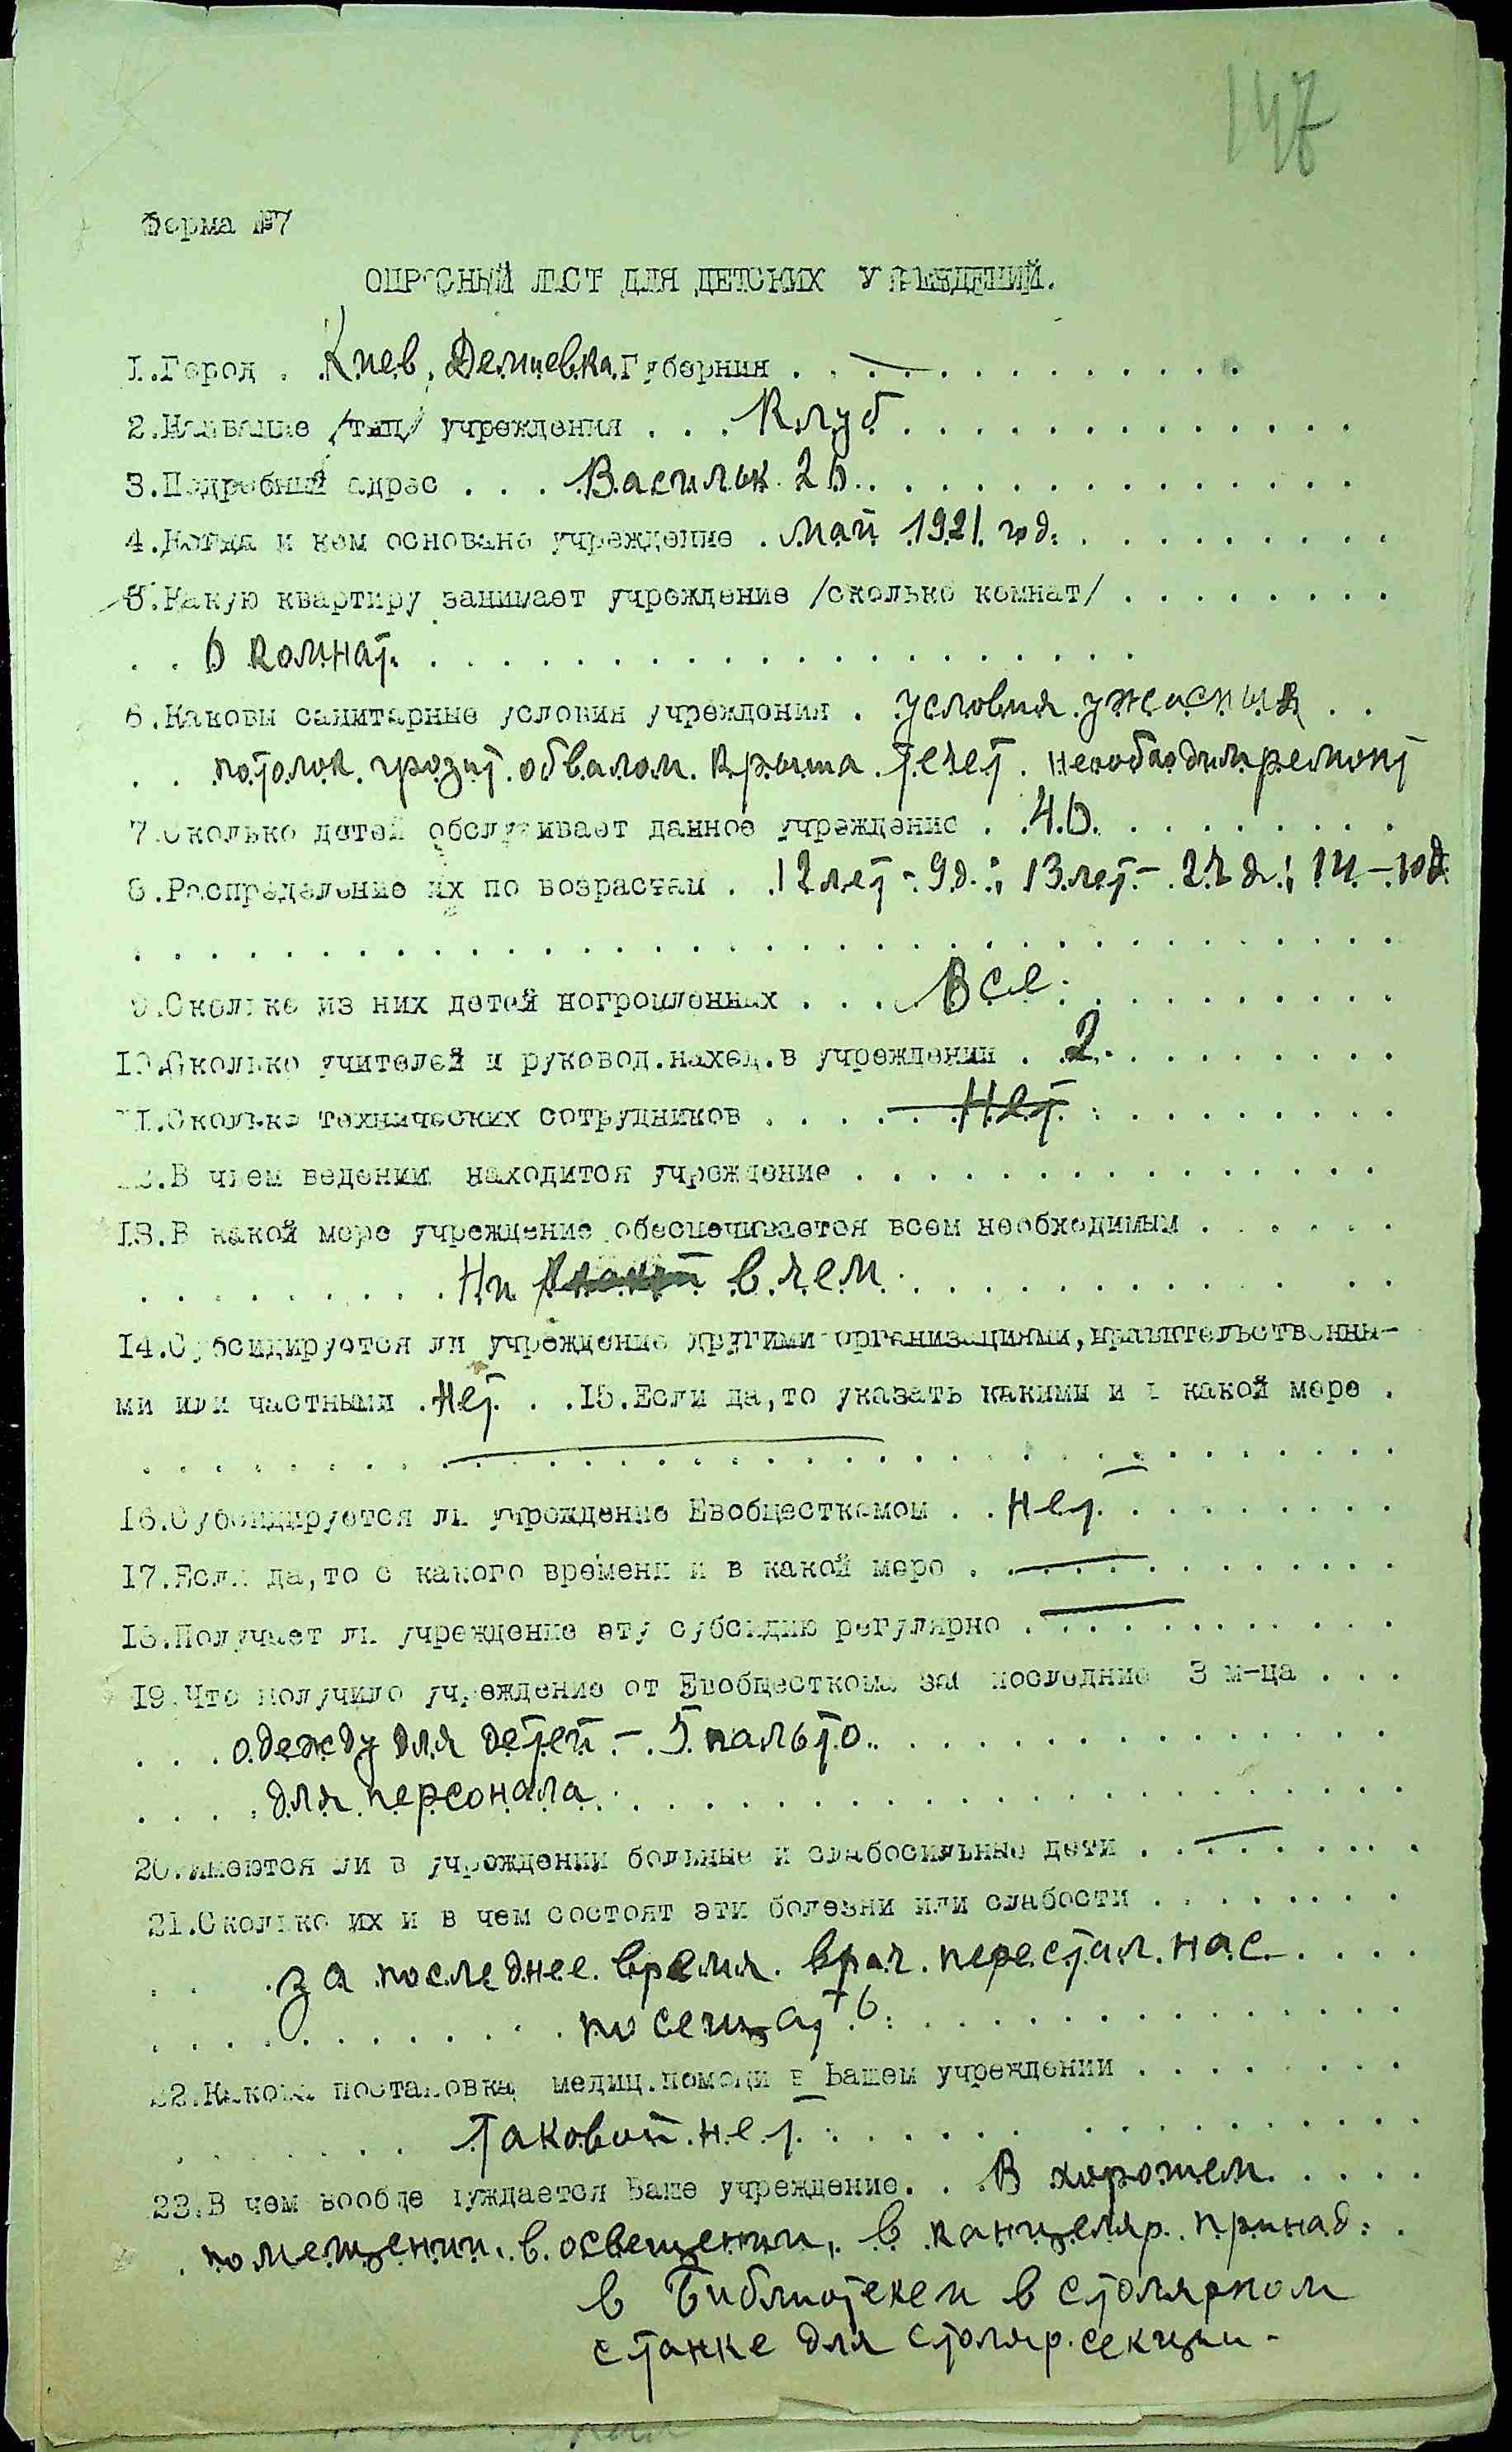 147
Форма №7
ОПРОСНЫЙ ЛИСТ ДЛЯ ДЕТСКИХ УЧРЕЖДЕНИЙ.
1.Город . Киев, Демиевка Губерния . . — . . .
2.Название /тип/ учреждения . . . Клуб . . .
3.Подробный адрес . . . Васильк. 26 . . .
4.Когда и кем основано учреждение . май 1921 год. . .
5.Какую квартиру занимает учреждение /сколько комнат/ . . .
. . 6 комнат. . .
6.Каковы санитарные условия учреждения . условия ужасныя . .
. . потолок грозит обвалом. крыша течет. необходим ремонт
7.Сколько детей обслуживает данное учреждение . . 46. . .
8.Распределение их по возрастам . 12 лет - 9 д.; 13 лет - 27 д.; 14 - 10 д
. . .
9.Сколько из них детей погромленных . . . Все . . .
10.Сколько учителей и руковод.наход.в учреждении . . 2. . .
11.Сколько технических сотрудников . . . Нет . . .
12.В чьем ведении находится учреждение . . .
13.В какой мере учреждение обеспечивается всем необходимым . . .
. . . Ни в чем . . .
14.Субсидируется ли учреждение другими организациями,правительственны-
ми или частными . Нет. . .15.Если да,то указать какими и в какой мере .
. . . — . . .
16.Субсидируется ли учреждение Евобщесткомом . . Нет. . .
17.Если да,то с какого времени и в какой мере . — . . .
18.Получает ли учреждение эту субсидию регулярно . — . . .
19.Что получило учреждение от Евобщесткома за последние 3 м-ца . . .
. . . одежду для детей - 5 пальто. . .
. . . для персонала . . .
20.Имеются ли в учреждении больные и слабосильные дети . — . . .
21.Сколько их и в чем состоят эти болезни или слабости . . .
. . за последнее время врач перестал нас . . .
. . . посещать . . .
22.Какова постановка медиц.помощи в Вашем учреждении . . .
. . . таковой нет . . .
23.В чем вообще нуждается Ваше учреждение. . В хорошем . . .
. помещении, в освещении, в канцеляр. принад. .
в Библиотеке и в столярном
станке для столяр. секции -